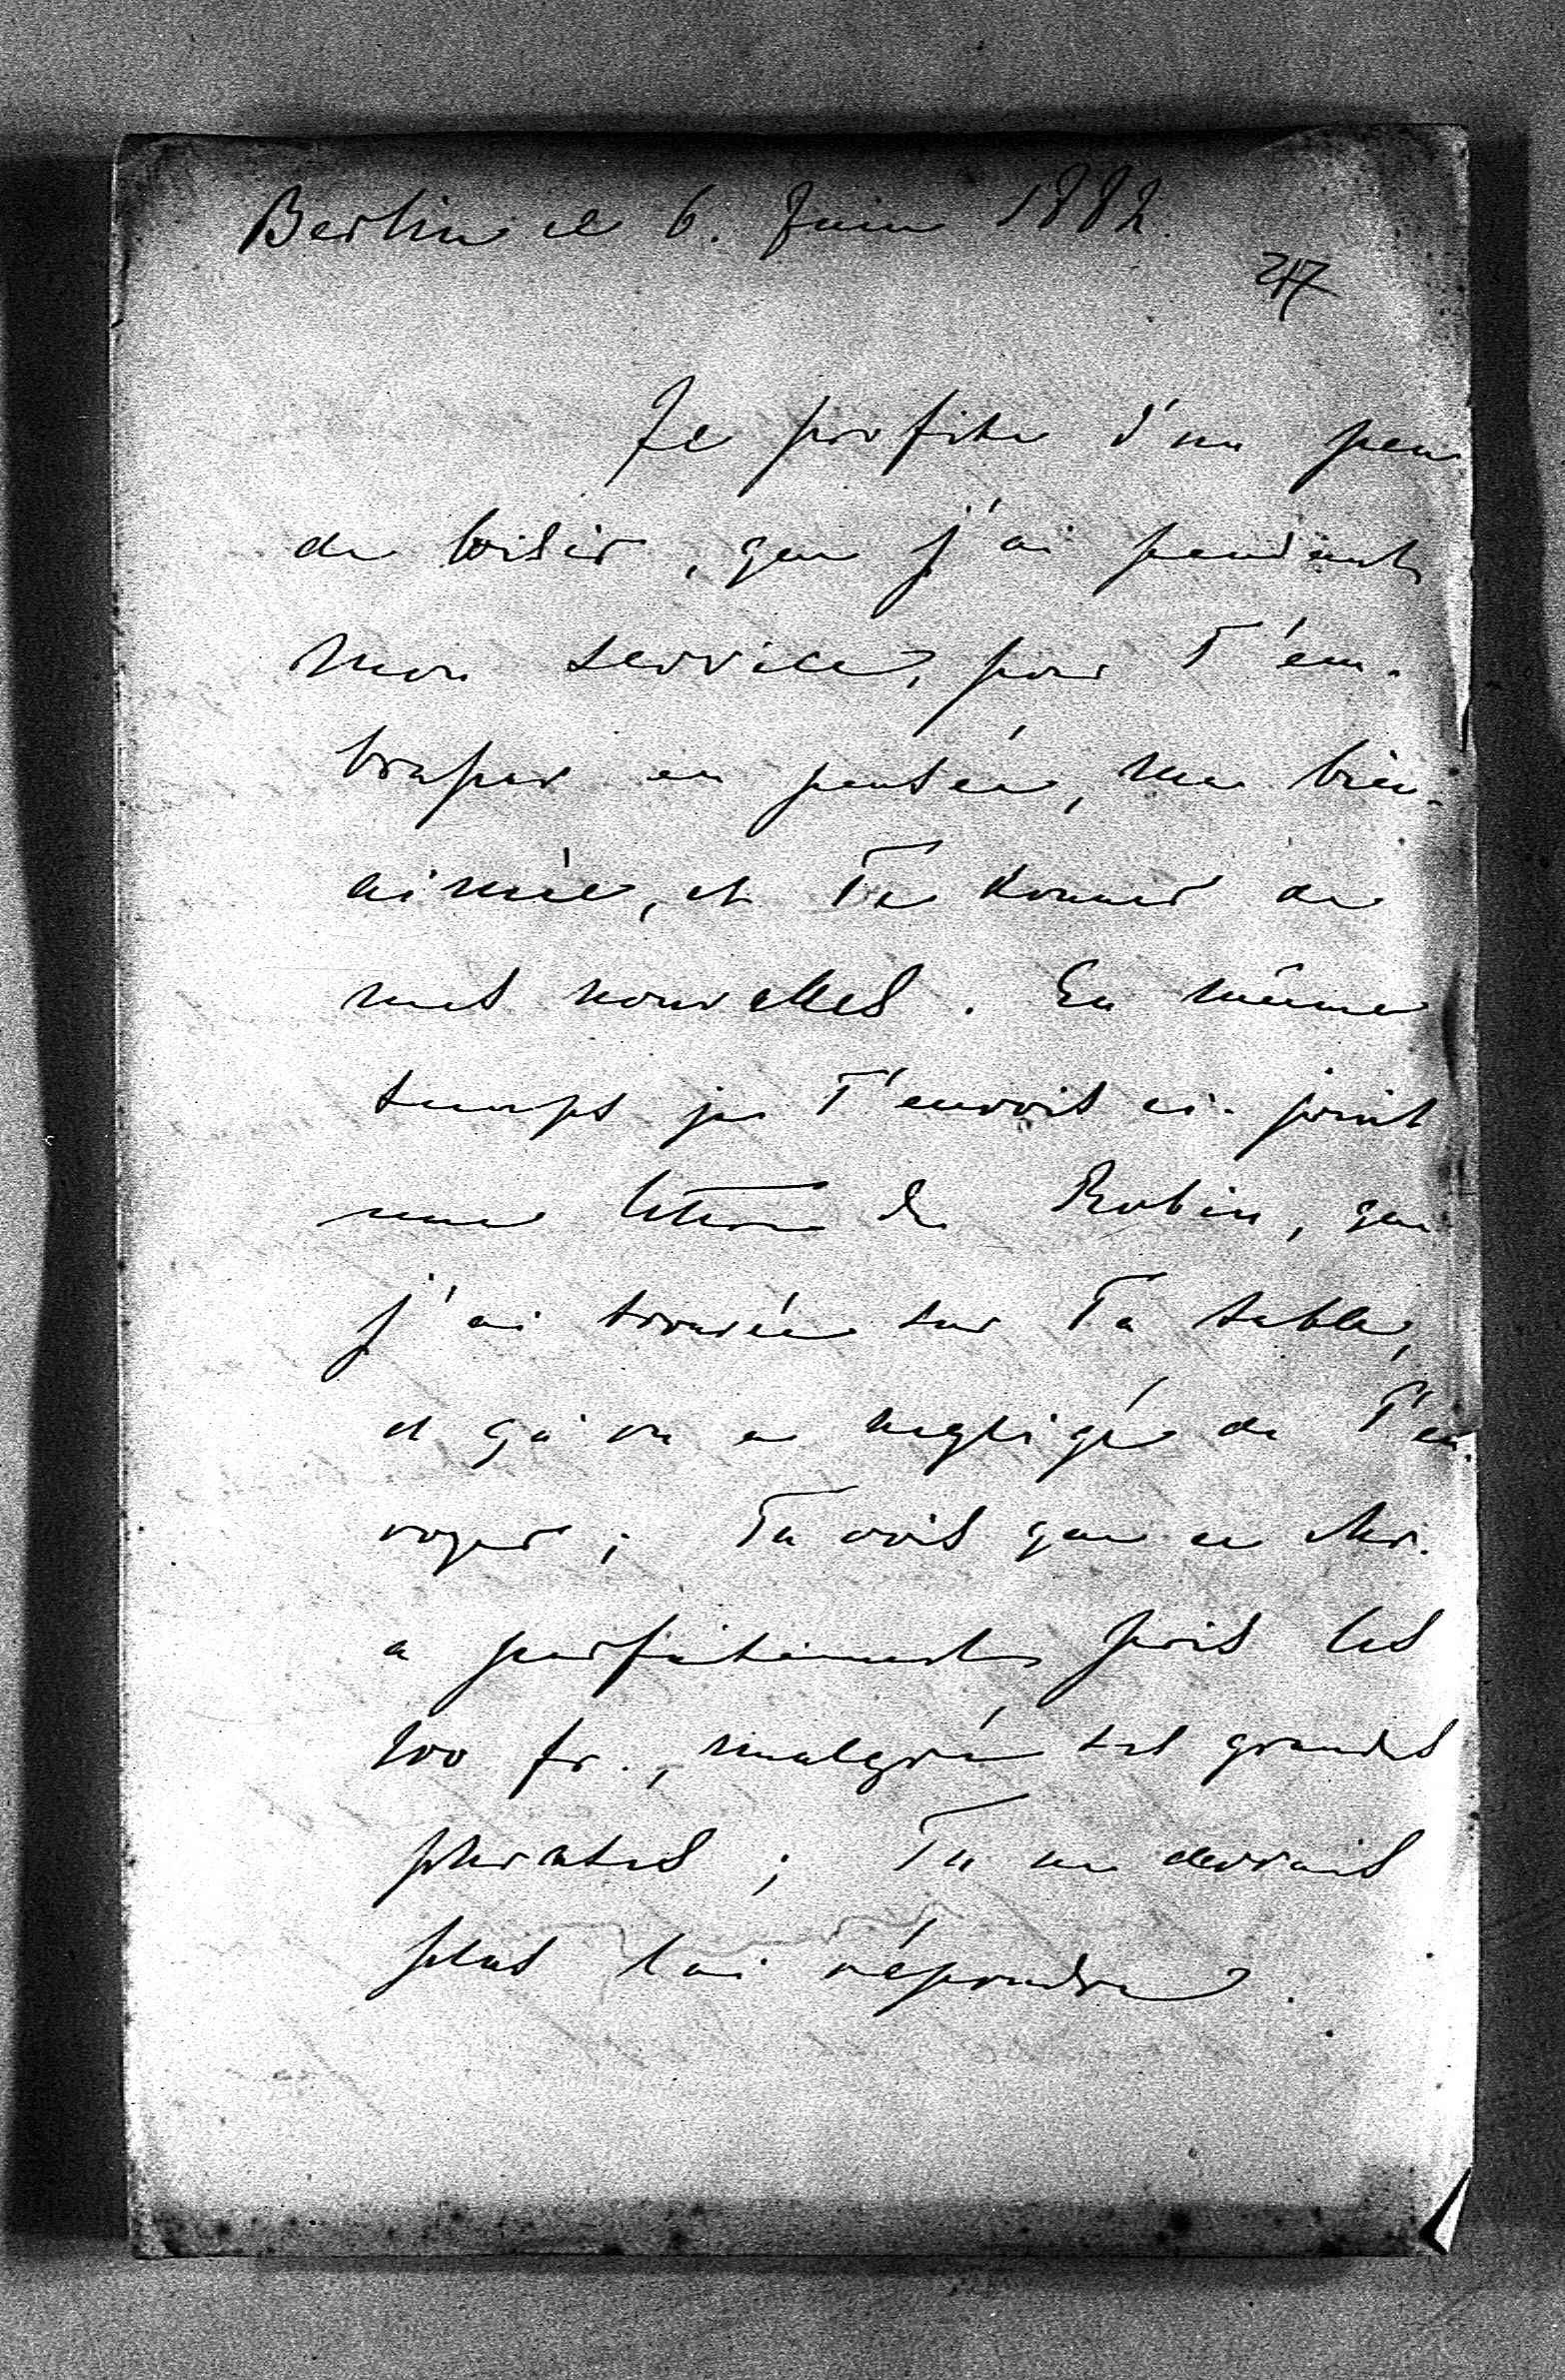 Berlin ce 6. Juin 1882.
217
Je profite d'un peu
de loisir, que j'ai pendant
mon service, pour T'em-
brasser en pensée, ma bien-
aimée, et Te donner de
mes nouvelles. En même
temps je T'envois ci-joint
une lettre de Robin, que
j'ai trouvée sur Ta table,
et qu'on a negligé de T'en-
voyer; Tu vois que ce Mr.
a parfaitement pris les
200 fr., malgré ses grandes
phrases; Tu ne devrais
plus lui répondre.